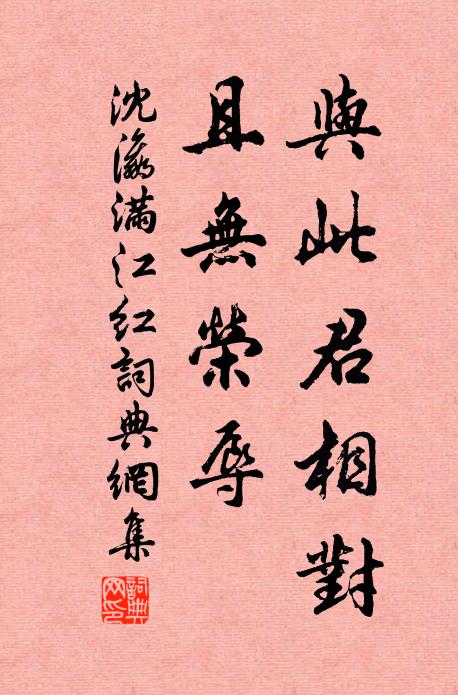 與此君相對
且無榮辱
沈瀛滿江红詞典網集
詞典网印